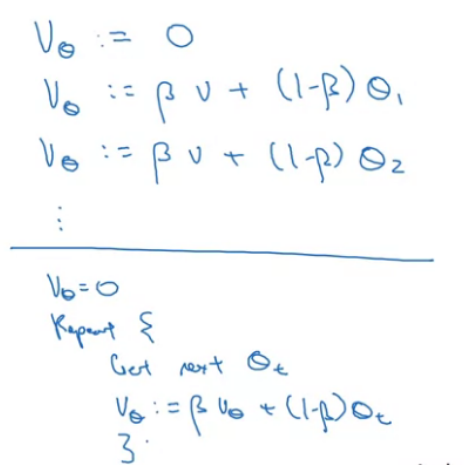 V_θ := 0
V_θ := β v + (1-β) θ_1
V_θ := β v + (1-β) θ_2
⋮
V_θ = 0
Repeat {
Get next θ_t
V_θ := β V_θ + (1-β) θ_t
}